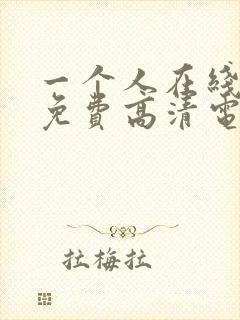 一个人在线
免费高清电
拉梅拉